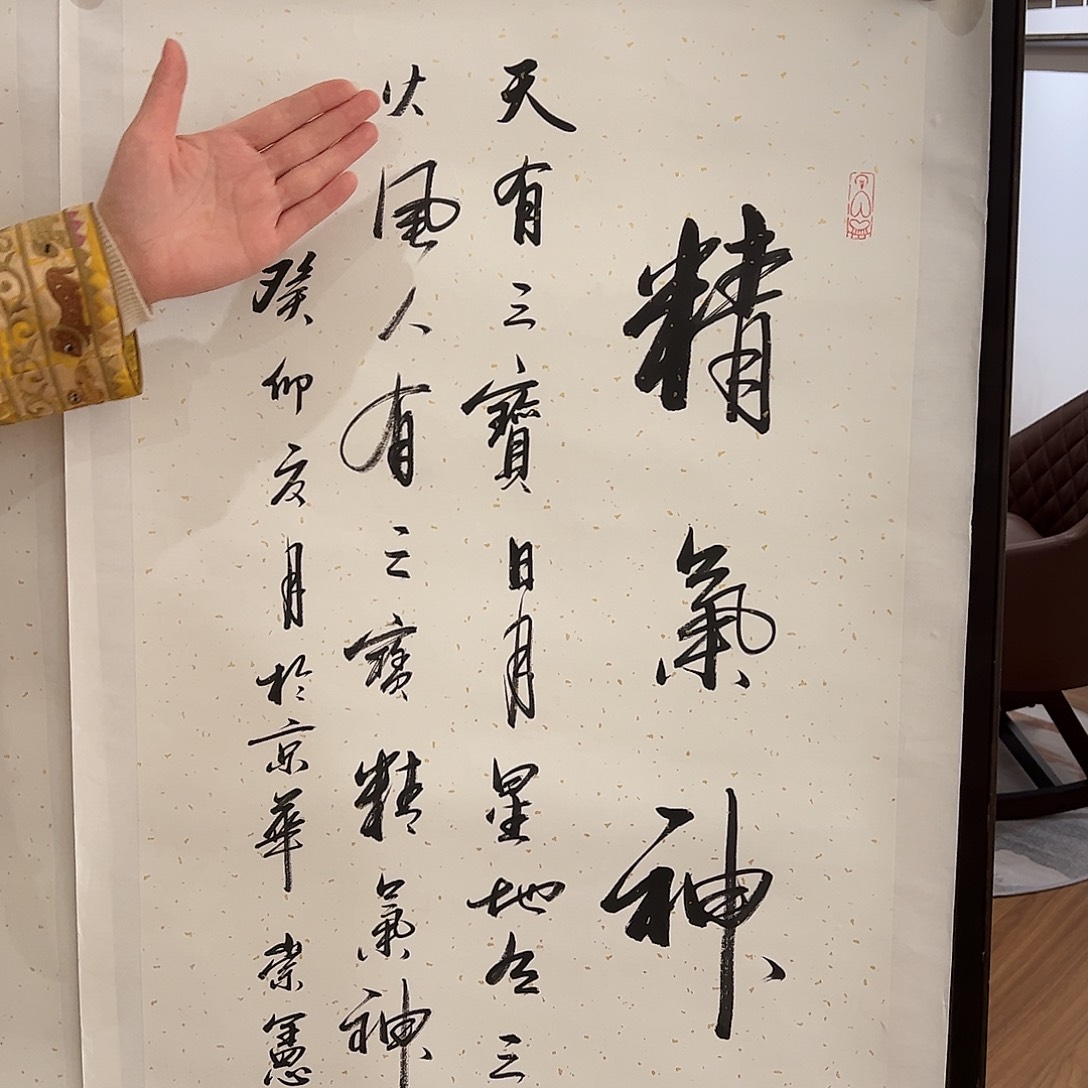 精氣神
天有三寶日月星地合三
火風人有三寶精氣神
癸卯亥月於京華崇憲